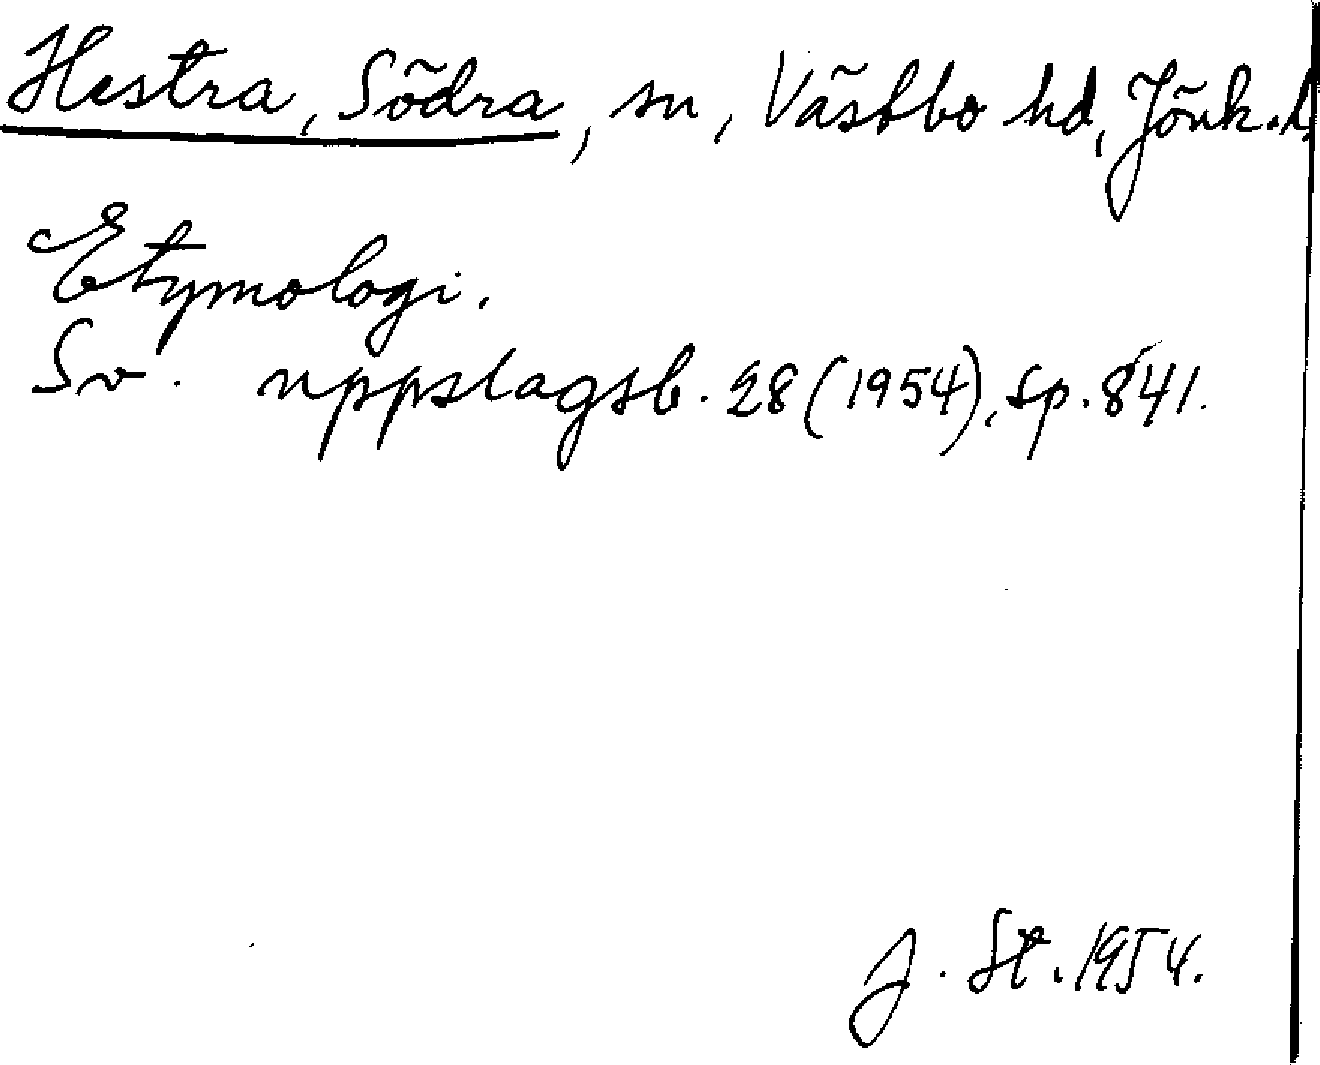 Hestra, Södra, sn, Västbo hd, Jönk. l.
Etymologi.
Sv. uppslagsb. 28 (1954), sp. 841.
J. St. 1954.